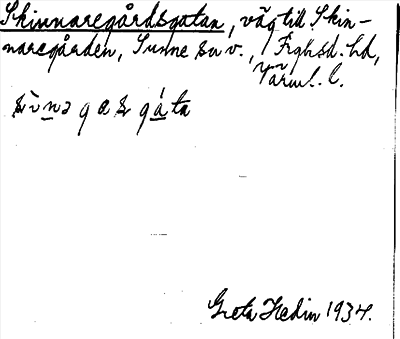 Skinnaregårdsgatan, väg till Skin-
naregården, Sunne sn v., Fryksd. hd,
Värml. l.
Greta Hedin 1934.